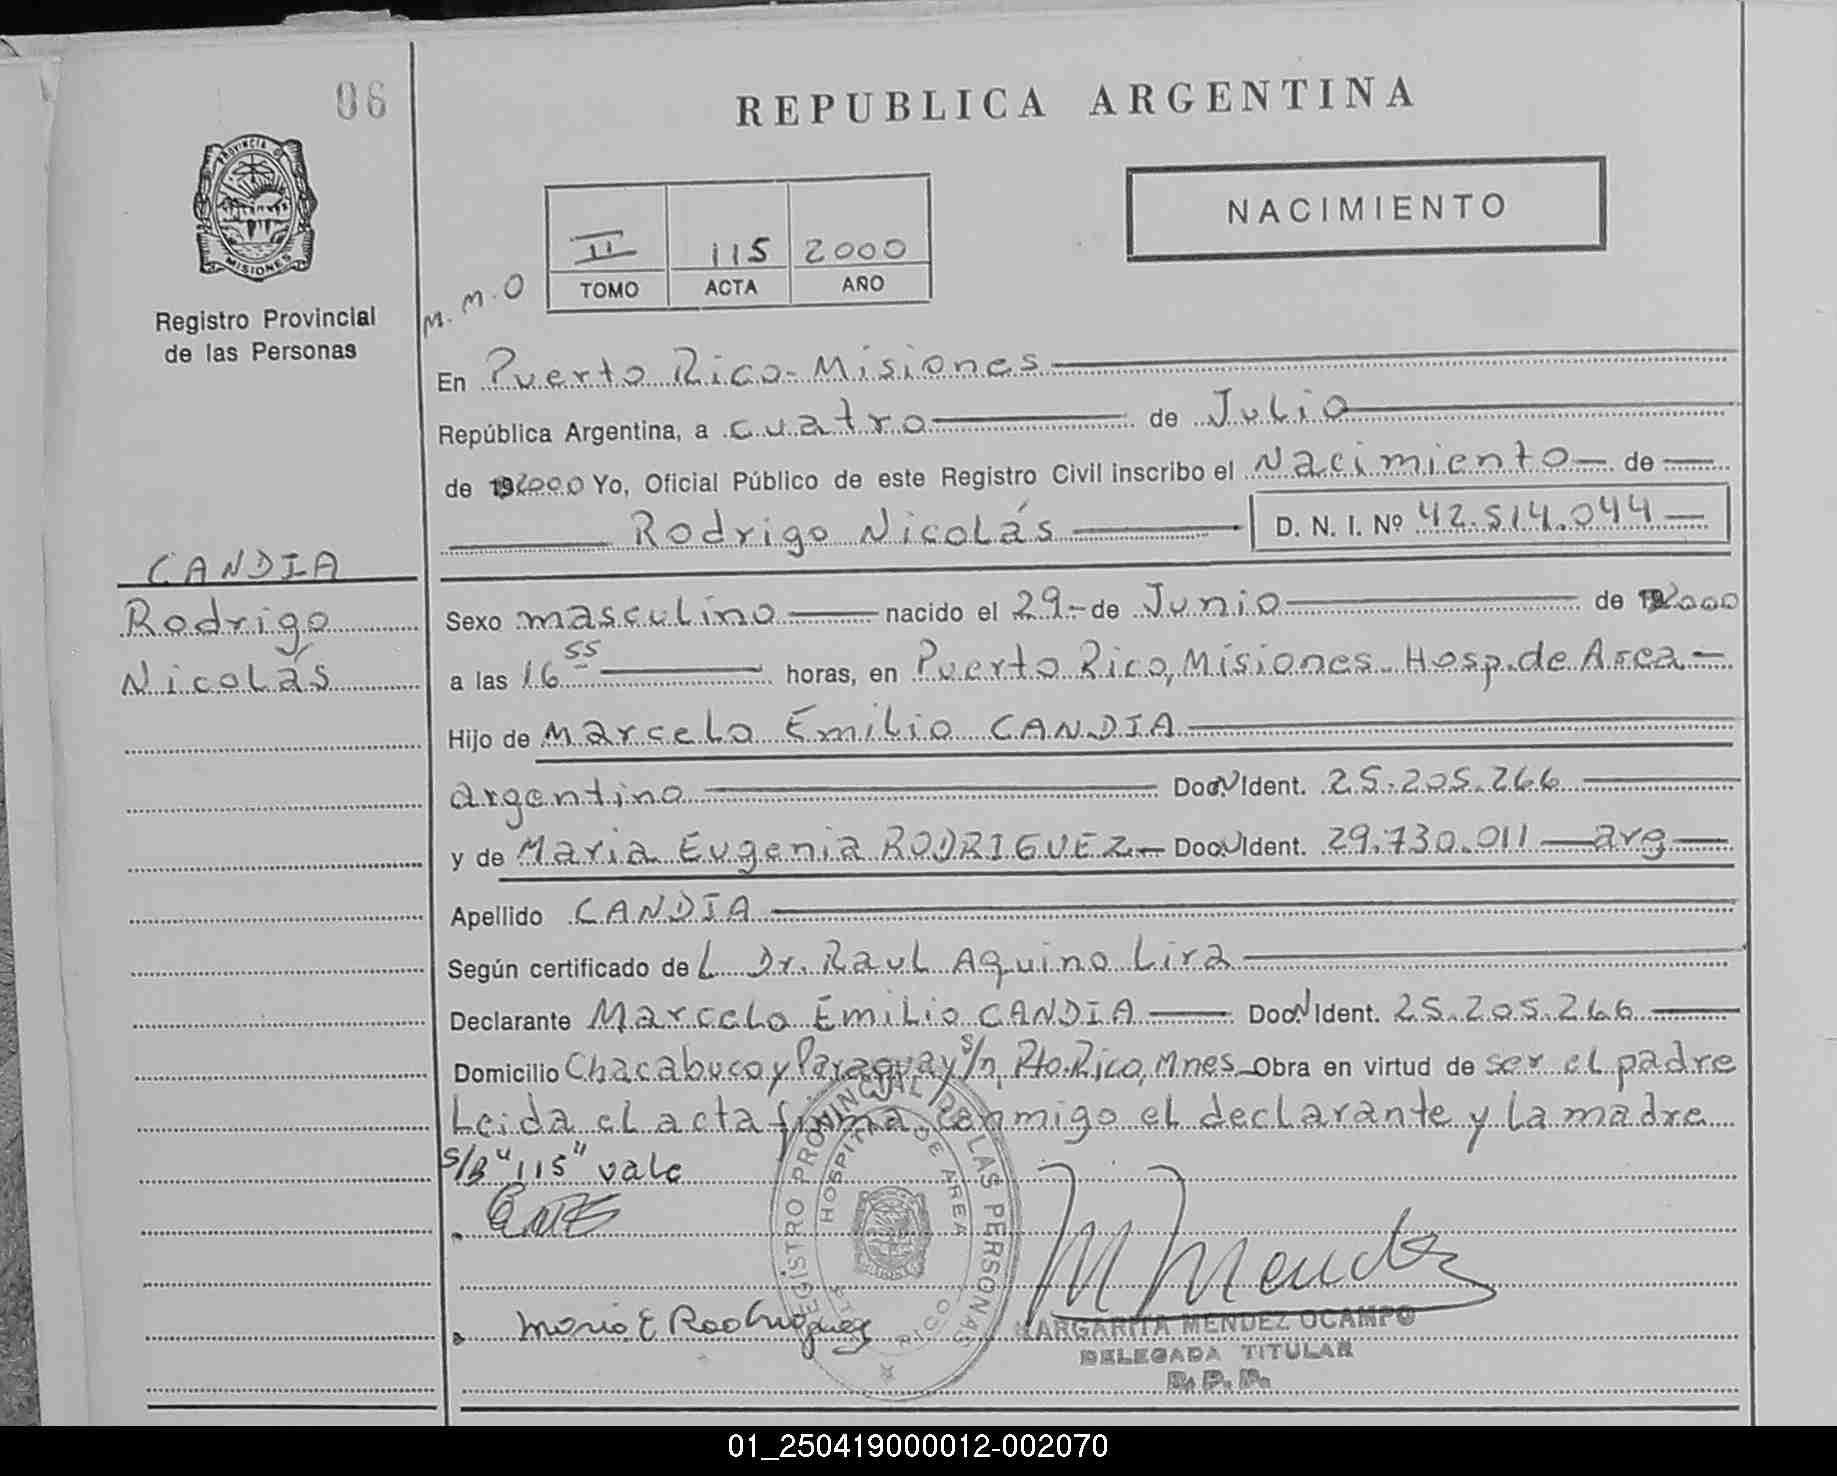 06
REPUBLICA ARGENTINA
PROVINCIA DE MISIONES
NACIMIENTO
II 115 2000
TOMO ACTA AÑO
M.M.O
Registro Provincial
de las Personas
En Puerto Rico-Misiones
República Argentina, a cuatro de Julio
de 192000 Yo, Oficial Público de este Registro Civil inscribo el Nacimiento de
Rodrigo Nicolás D. N. I. Nº 42.514.044
CANDIA
Rodrigo
Nicolás
Sexo masculino nacido el 29 de Junio de 192000
a las 16 55 horas, en Puerto Rico, Misiones. Hosp. de Area
Hijo de Marcelo Emilio CANDIA
argentino Doc. Ident. 25.205.266
y de Maria Eugenia RODRIGUEZ Doc. Ident. 29.730.011 arg
Apellido CANDIA
Según certificado del Dr. Raul Aquino Lira
Declarante Marcelo Emilio CANDIA Doc. Ident. 25.205.266
Domicilio Chacabuco y Paraguay s/n, Pto. Rico, Mnes. Obra en virtud de ser el padre
Leida el acta firma conmigo el declarante y la madre
s/B "115" vale
REGISTRO PROVINCIAL DE LAS PERSONAS
HOSPITAL DE AREA
PTO. RICO
M Mendez
Maria E Rodriguez
MARGARITA MENDEZ OCAMPO
DELEGADA TITULAR
R. P. P.
01_250419000012-002070